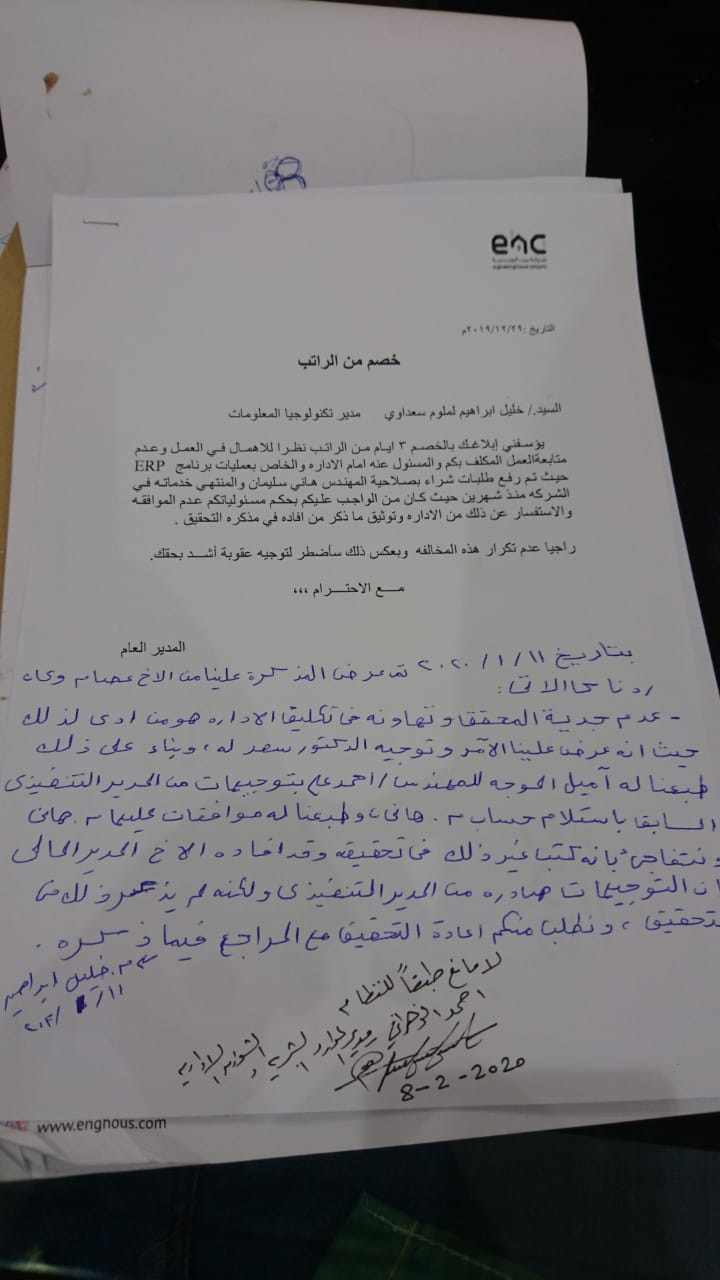 enc
التاريخ :٢٠١٩/١٢/٢٩م
خصم من الراتب
السيد./ خليل ابراهيم لملوم سعداوي مدير تكنولوجيا المعلومات
يؤسفني إبلاغك بالخصم ٣ ايام من الراتب نظرا للاهمال في العمل وعدم
متابعةالعمل المكلف بكم والمسئول عنه امام الاداره والخاص بعمليات برنامج ERP
حيث تم رفع طلبات شراء بصلاحية المهندس هاني سليمان والمنتهي خدماته في
الشركه منذ شهرين حيث كان من الواجب عليكم بحكم مسئولياتكم عدم الموافقه
والاستفسار عن ذلك من الاداره وتوثيق ما ذكر من افاده في مذكره التحقيق .
راجيا عدم تكرار هذه المخالفه وبعكس ذلك سأضطر لتوجيه عقوبة أشد بحقك.
مع الاحترام ،،،
المدير العام
بتاريخ ١١/١/٢٠٢٠ تم عرض المذكرة علينا من الاخ عصام وكان
ردنا كالاتى :
- عدم جدية المحقق وتهاونه فى تكليف الاداره هو من ادى لذلك
حيث انه عرض علينا الأمر وتوجيه الدكتور سعد له ، وبناء على ذلك
طبعنا له آميل الموجه للمهندس / احمد على بتوجيهات من المدير التنفيذى
السابق باستلام حساب م . هانى ، وطبعنا له موافقات عليها م . هانى
ونتفاجئ بانه كتب غير ذلك فى تحقيقه وقد افاده الاخ المدير المالى
ان التوجيهات صادره من المدير التنفيذى ولكنه لم يذكر ذلك فى
تحقيق ، ونطلب منكم اعادة التحقيق مع المراجع فيما ذكره .
م. خليل ابراهيم
لا مانع طبقاً للنظام
احمد الزهراني مدير الموارد البشريه والشئون الاداريه
8-2-2020
www.engnous.com